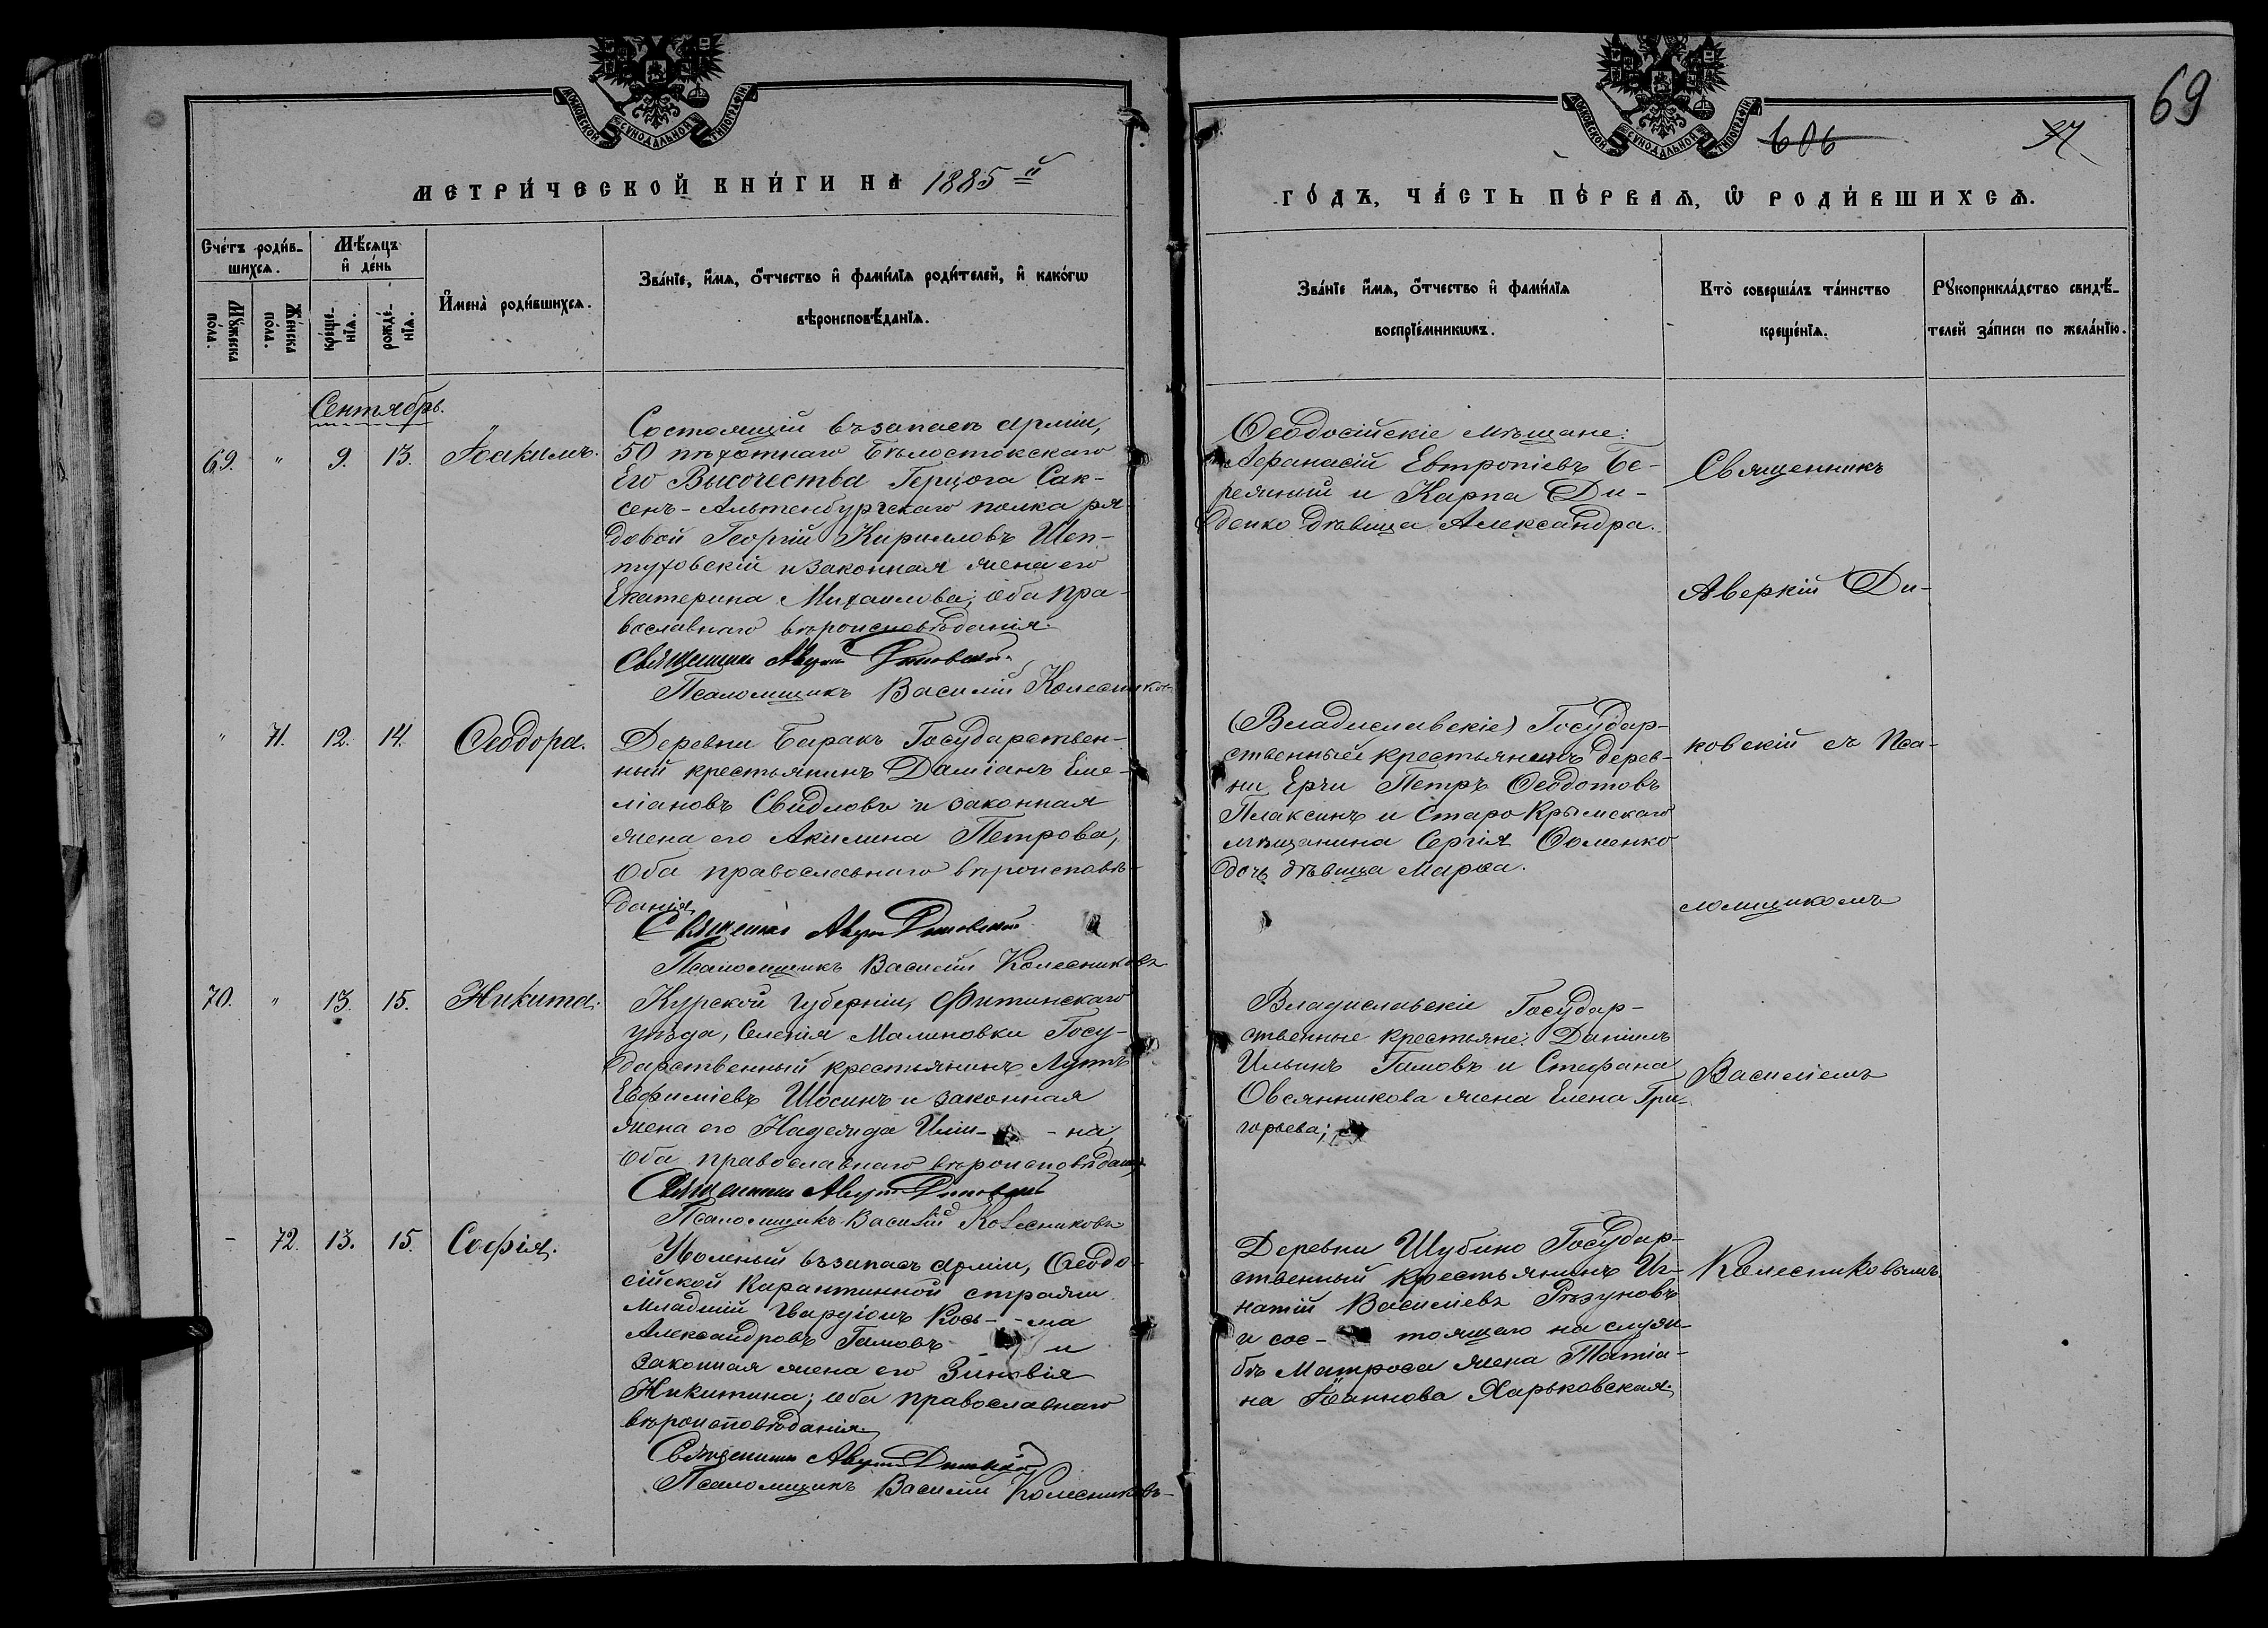 МОСКОВСКОЙ СѴНОДАЛЬНОЙ ТИПОГРАФІИ
МЕТРИ́ЧЕСКОЙ КНИ́ГИ НА 1885й
Сче́тъ роди́в-
шихсѧ.
Мѣ́сѧцъ
и҆ де́нь
И҆мена̀ роди́вшихсѧ.
Зва́нїе, и҆́мѧ, ѻ҆́тчество и҆ фами́лїѧ роди́телей, и҆ како́гѡ
вѣроисповѣ́данїѧ.
Мꙋ́жеска
по́ла.
Же́нска
по́ла.
креще-
нїѧ.
рожде́-
нїѧ.
Сентябрь.
69. " 9. 13. Іоакимъ.
Состоящій въ запасѣ арміи,
50 пѣхотнаго Бѣлостокскаго
Его Высочества Герцога Сак-
сенъ-Альтенбургскаго полка ря-
довой Георгій Кирилловъ Шеп-
туховскій и законная жена его
Екатерина Михаилова; оба пра-
вославнаго вѣроисповѣданія.
Священникъ Аверкій Диковскій
Псаломщикъ Василій Колесниковъ
" 71. 12. 14. Ѳеодора.
Деревни Баракъ Государствен-
ный крестьянинъ Даміанъ Еме-
ліановъ Свидловъ и законная
жена его Акилина Петрова,
оба православнаго вѣроисповѣ-
данія.
Священникъ Аверкій Диковскій
Псаломщикъ Василій Колесниковъ
70. " 13. 15. Никита.
Курской губерніи, Фатинскаго
уѣзда, Селенія Малиновки Госу-
дарственный крестьянинъ Луппъ
Евфиміевъ Шосинъ и законная
жена его Надежда Ильи- - на,
оба православнаго вѣроисповѣданія
Священникъ Аверкій Диковскій
Псаломщикъ Василій Колесниковъ
- 72. 13. 15. Софія.
Уволный въ запасъ арміи, Ѳеодо-
сійской Карантинной стражи
младшій гвардіонъ Кось- - ма
Александровъ Гамовъ и
законная жена его Зиновія
Никитина; оба православнаго
вѣроисповѣданія.
Священникъ Аверкій Диковскій
Псаломщикъ Василій Колесниковъ
69
МОСКОВСКОЙ СѴНОДАЛЬНОЙ ТИПОГРАФІИ
606
ГО́ДЪ, ЧА́СТЬ ПЕ́РВАѦ, Ѡ҆ РОДИ́ВШИХСѦ.
Зва́нїе и҆́мѧ, ѻ҆́тчество и҆ фами́лїѧ
воспрїе́мникѡвъ.
Кто̀ соверша́лъ та́инство
креще́нїѧ.
Рꙋкоприкла́дство свидѣ́-
телей за́писи по жела́нїю.
Ѳеодосійскіе мѣщане:
Аѳанасій Евтропіевъ Бе-
режный и Карпа Ди-
денко дѣвица Александра.
Священникъ
Аверкій Ди-
(Владиславскіе) Государ-
ственный крестьянинъ дерев-
ни Ерчи Петръ Ѳеодотовъ
Плаксинъ и Старо Крымскаго
мѣщанина Сергія Ѳоменко
дочь дѣвица Марѳа.
ковскій съ Пса-
ломщикомъ
Владиславскіе Государ-
ственные крестьяне: Даніилъ
Ильинъ Гамовъ и Стефана
Овсянникова жена Елена Гри-
горьева;
Василіемъ
Деревни Шубино Государ-
ственный крестьянинъ Иг-
натій Василіевъ Рѣзуновъ
и сос- тоящаго на служ-
бѣ Матроса жена Татіа-
на Іоаннова Харьковская.
Колесниковымъ.